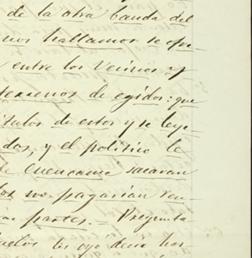 de la otra banda del
nos hallamos se
entre los vecinos y
terrenos de egidos: que
titulos de estos y se
dos, y el politico le
de Cuencame sacaran
no pagarian
partes. Pregunta
los